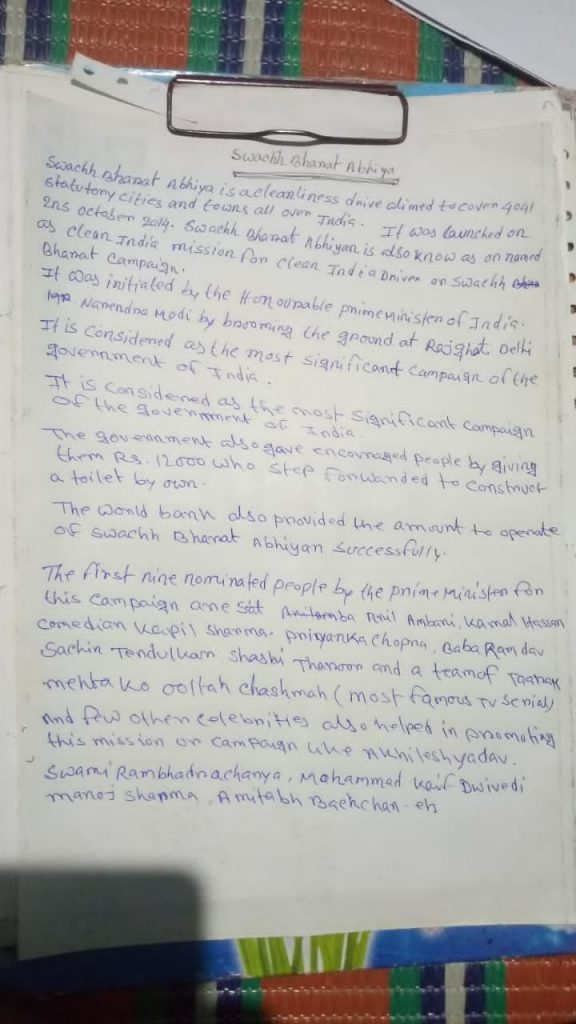 Swachh Bharat Abhiya
Swachh Bharat Abhiya is a cleanliness drive alimed to cover 4041
statutory cities and towns all over India. It was launched on
2ns october 2014. Swachh Bharat Abhiyan is also know as on named
as clean India mission for clean India Driver or Swachh
Bharat Campaign.
It was initiated by the Honourable prime Minister of India.
Narendra Modi by brooming the ground at Rajghat Delhi
It is considered as the most significant Campaign of the
government of India.
It is considered as the most significant Campaign
of the government of India
The government also gave encouraged people by giving
them Rs. 12000 who step forwarded to construct
a toilet by own.
The world bank also provided the amount to operate
of swachh Bharat Abhiyan successfully.
The first nine nominated people by the prime Minister for
this campaign are Anil Ambani, Kamal Hassan
comedian Kapil sharma. priyanka chopra, Baba Ram dav
Sachin Tendulkar shashi Tharoor and a team of Taarak
mehta ko ooltah chashmah (most famous TV serial)
and few other celebrities also helped in promoting
this mission or campaign like Akhilesh yadav.
Swami Rambhadracharya, Mohammad Kaif Dwivedi
manoj sharma, Amitabh Bachchan. eh